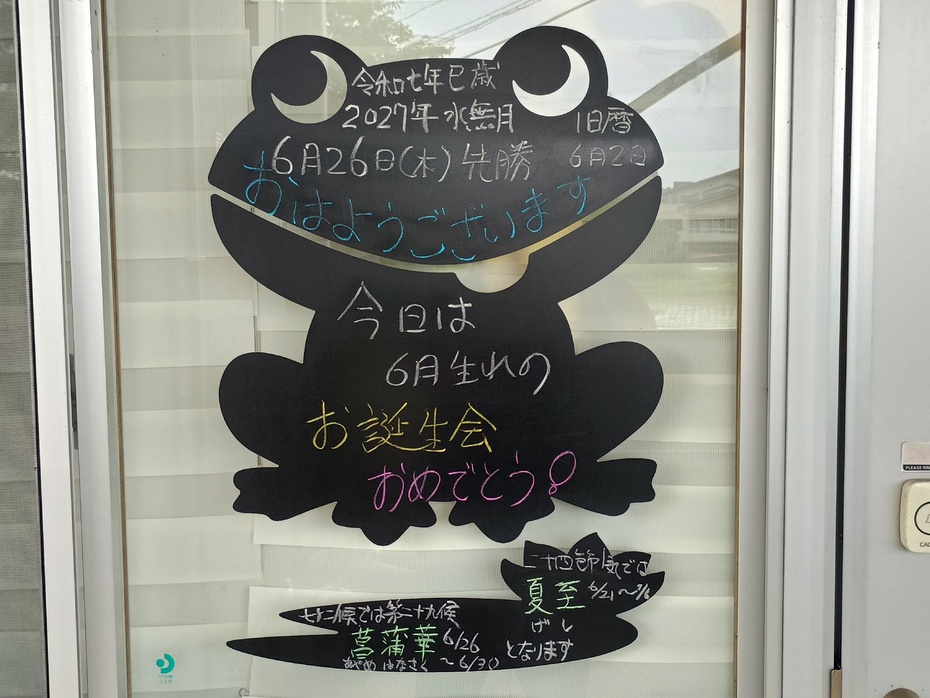 令和七年巳歳
2027年 水無月 旧暦
6月26日(木) 先勝 6月2日
おはようございます
今日は
6月生れの
お誕生会
おめでとう!
二十四節気では
夏至 6/21~7/6
げし
となります
七十二候では第二十九候
菖蒲華 6/26
あやめ はなさく ~6/30